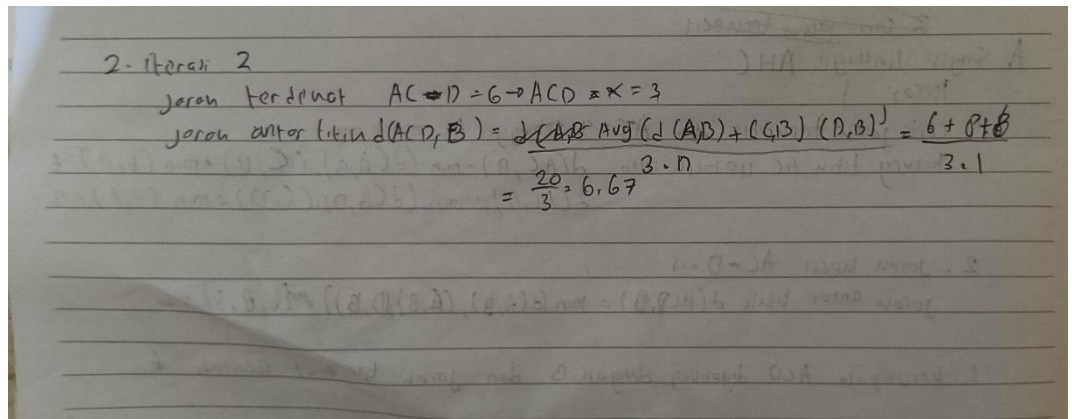 2. Iterasi 2
Jarak terdekat AC - D = 6 → ACD = x = 3
Jarak antar titik d(ACD, B) = Avg (d(A,B) + (C,B) (D,B)) / 3.n = 6 + 8 + 6 / 3.1
= 20/3 = 6,67